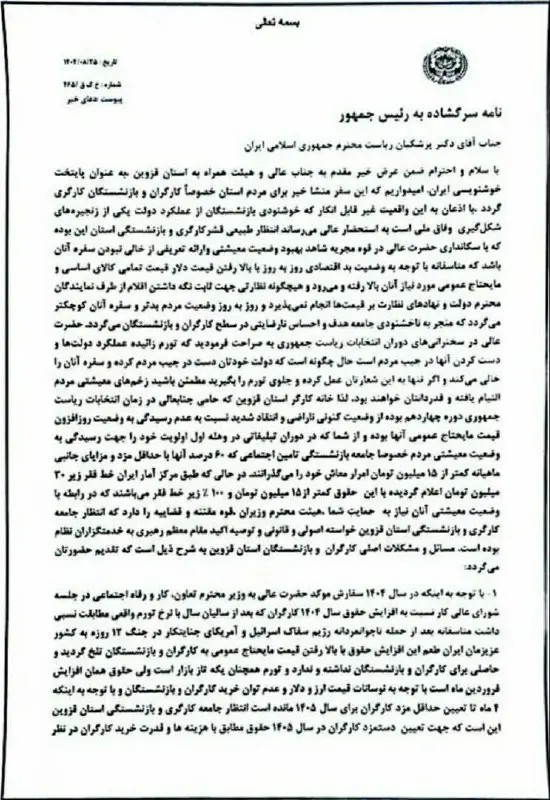 بسمه تعالی
تاریخ : ۱۴۰۴/۰۸/۲۵
شماره : خ ک ق /۴۶۵
پیوست :دعای خیر
نامه سرگشاده به رئیس جمهور
جناب آقای دکتر پزشکیان ریاست محترم جمهوری اسلامی ایران
با سلام و احترام ضمن عرض خیر مقدم به جناب عالی و هیئت همراه به استان قزوین ،به عنوان پایتخت
خوشنویسی ایران، امیدواریم که این سفر منشا خیر برای مردم استان خصوصاً کارگران و بازنشستگان کارگری
گردد .با اذعان به این واقعیت غیر قابل انکار که خوشنودی بازنشستگان از عملکرد دولت یکی از زنجیره‌های
شکل‌گیری وفاق ملی است به استحضار عالی می‌رساند انتظار طبیعی قشرکارگری و بازنشستگی استان این بوده
که با سکانداری حضرت عالی در قوه مجریه شاهد بهبود وضعیت معیشتی وارائه تعریفی از خالی نبودن سفره آنان
باشد که متاسفانه با توجه به وضعیت بد اقتصادی روز به روز با بالا رفتن قیمت دلار قیمت تمامی کالای اساسی و
مایحتاج عمومی مورد نیاز آنان بالا رفته و می‌رود و هیچگونه نظارتی جهت ثابت نگه داشتن اقلام از طرف نمایندگان
محترم دولت و نهادهای نظارت بر قیمت‌ها انجام نمی‌پذیرد و روز به روز وضعیت مردم بدتر و سفره آنان کوچکتر
می‌گردد که منجر به ناخشنودی جامعه هدف و احساس نارضایتی در سطح کارگران و بازنشستگان می‌گردد. حضرت
عالی در سخنرانی‌های دوران انتخابات ریاست جمهوری به صراحت فرمودید که تورم زائیده عملکرد دولت‌ها و
دست کردن آنها در جیب مردم است حال چگونه است که دولت خودتان دست در جیب مردم کرده و سفره آنان را
خالی می‌کند و اگر تنها به این شعارتان عمل کرده و جلوی تورم را بگیرید مطمئن باشید زخم‌های معیشتی مردم
التیام یافته و قدردانتان خواهند بود. لذا خانه کارگر استان قزوین که حامی جنابعالی در زمان انتخابات ریاست
جمهوری دوره چهاردهم بوده از وضعیت کنونی ناراضی و انتقاد شدید نسبت به عدم رسیدگی به وضعیت روزافزون
قیمت مایحتاج عمومی آنها بوده و از شما که در دوران تبلیغاتی در وهله اول اولویت خود را جهت رسیدگی به
وضعیت معیشتی مردم خصوصا جامعه بازنشستگی تامین اجتماعی که ۶۰ درصد آنها با حداقل مزد و مزایای جانبی
ماهیانه کمتر از ۱۵ میلیون تومان امرار معاش خود را می‌گذرانند. در حالی که طبق مرکز آمار ایران خط فقر زیر ۳۰
میلیون تومان اعلام گردیده با این حقوق کمتر از۱۵ میلیون تومان و ۱۰۰ ٪ زیر خط فقر می‌باشند که در رابطه با
وضعیت معیشتی آنان نیاز به حمایت شما ،هیئت محترم وزیران ،قوه مقننه و قضاییه را دارد که انتظار جامعه
کارگری و بازنشستگی استان قزوین خواسته اصولی و قانونی و توصیه اکید مقام معظم رهبری به خدمتگزاران نظام
بوده است. مسائل و مشکلات اصلی کارگران و بازنشستگان استان قزوین به شرح ذیل است که تقدیم حضورتان
می‌گردد:
۱- با توجه به اینکه در سال ۱۴۰۴ سفارش موکد حضرت عالی به وزیر محترم تعاون، کار و رفاه اجتماعی در جلسه
شورای عالی کار نسبت به افزایش حقوق سال ۱۴۰۴ کارگران که بعد از سالیان سال با نرخ تورم واقعی مطابقت نسبی
داشت متاسفانه بعد از حمله ناجوانمردانه رژیم سفاک اسرائیل و آمریکای جنایتکار در جنگ ۱۲ روزه به کشور
عزیزمان ایران طعم این افزایش حقوق با بالا رفتن قیمت مایحتاج عمومی به کارگران و بازنشستگان تلخ گردید و
حاصلی برای کارگران و بازنشستگان نداشته و ندارد و تورم همچنان یکه تاز بازار است ولی حقوق همان افزایش
فروردین ماه است با توجه به نوسانات قیمت ارز و دلار و عدم توان خرید کارگران و بازنشستگان و با توجه به اینکه
۴ ماه تا تعیین حداقل مزد کارگران برای سال ۱۴۰۵ مانده است انتظار جامعه کارگری و بازنشستگی استان قزوین
این است که جهت تعیین دستمزد کارگران در سال ۱۴۰۵ حقوق مطابق با هزینه ها و قدرت خرید کارگران در نظر